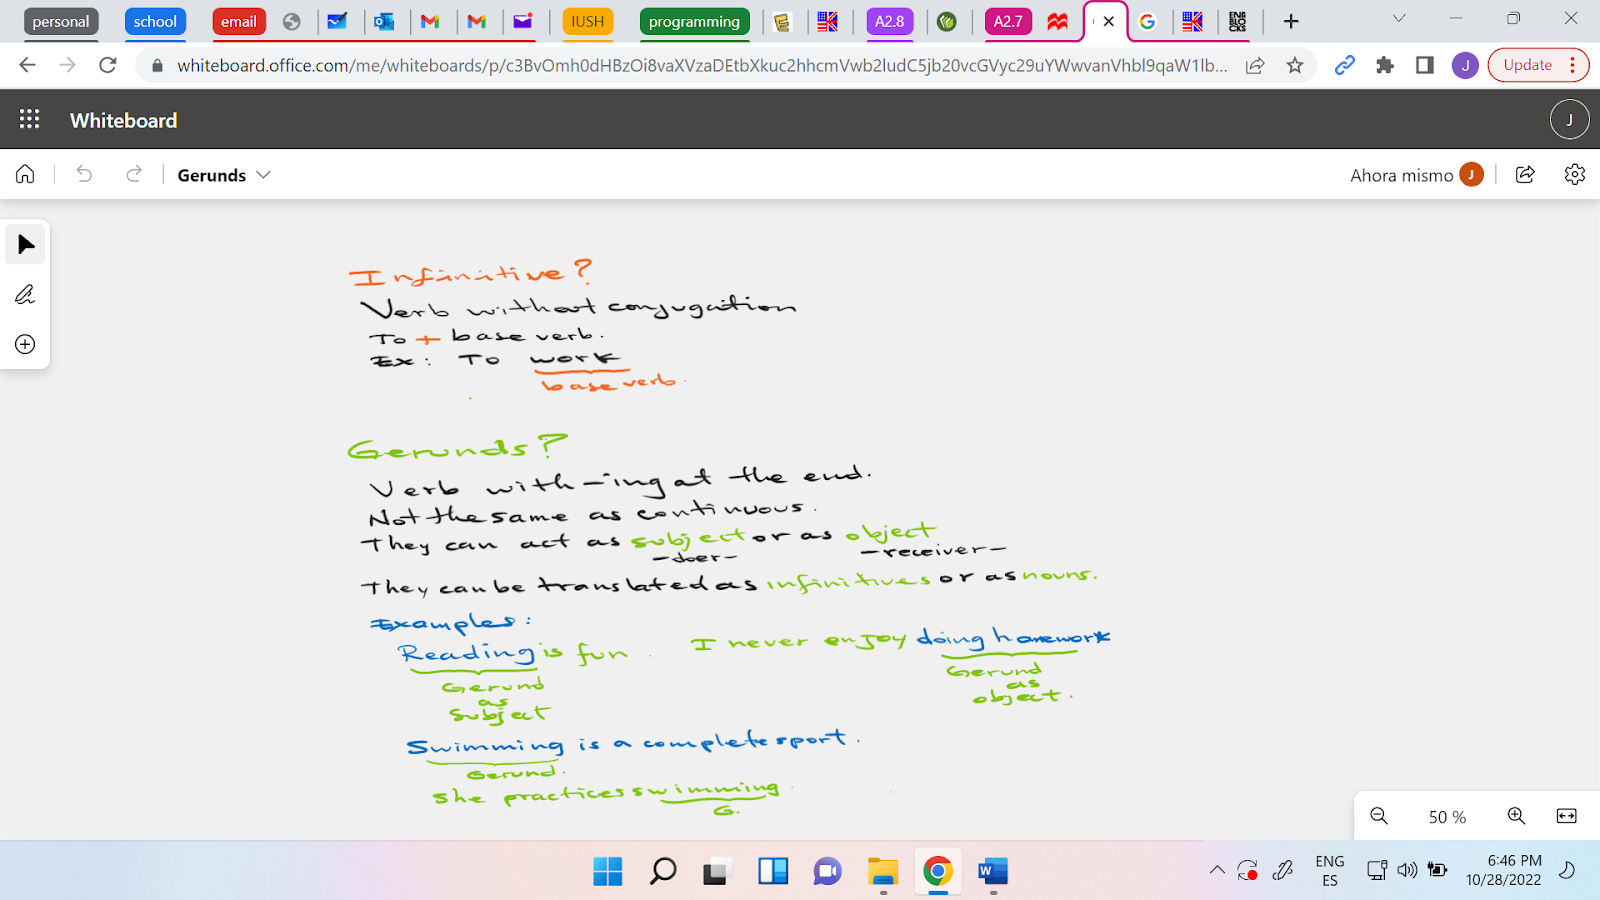 personal school email IUSH programming A2.8 A2.7 ENGLISH BLOCKS
whiteboard.office.com/me/whiteboards/p/c3BvOmh0dHBzOi8vaXVzaDEtbXkuc2hhcmVwb2ludC5jb20vcGVyc29uYWwvanVhbl9qaW1lb... J Update
Whiteboard J
Gerunds Ahora mismo J
Infinitive?
Verb without conjugation
To + base verb.
Ex: To work
base verb.
Gerunds?
Verb with -ing at the end.
Not the same as continuous.
They can act as subject or as object
-doer- -receiver-
They can be translated as infinitives or as nouns.
Examples:
Reading is fun. I never enjoy doing homework
Gerund as subject
Gerund as object.
Swimming is a complete sport.
Gerund.
She practices swimming.
G.
50 %
W
ENG ES
6:46 PM
10/28/2022